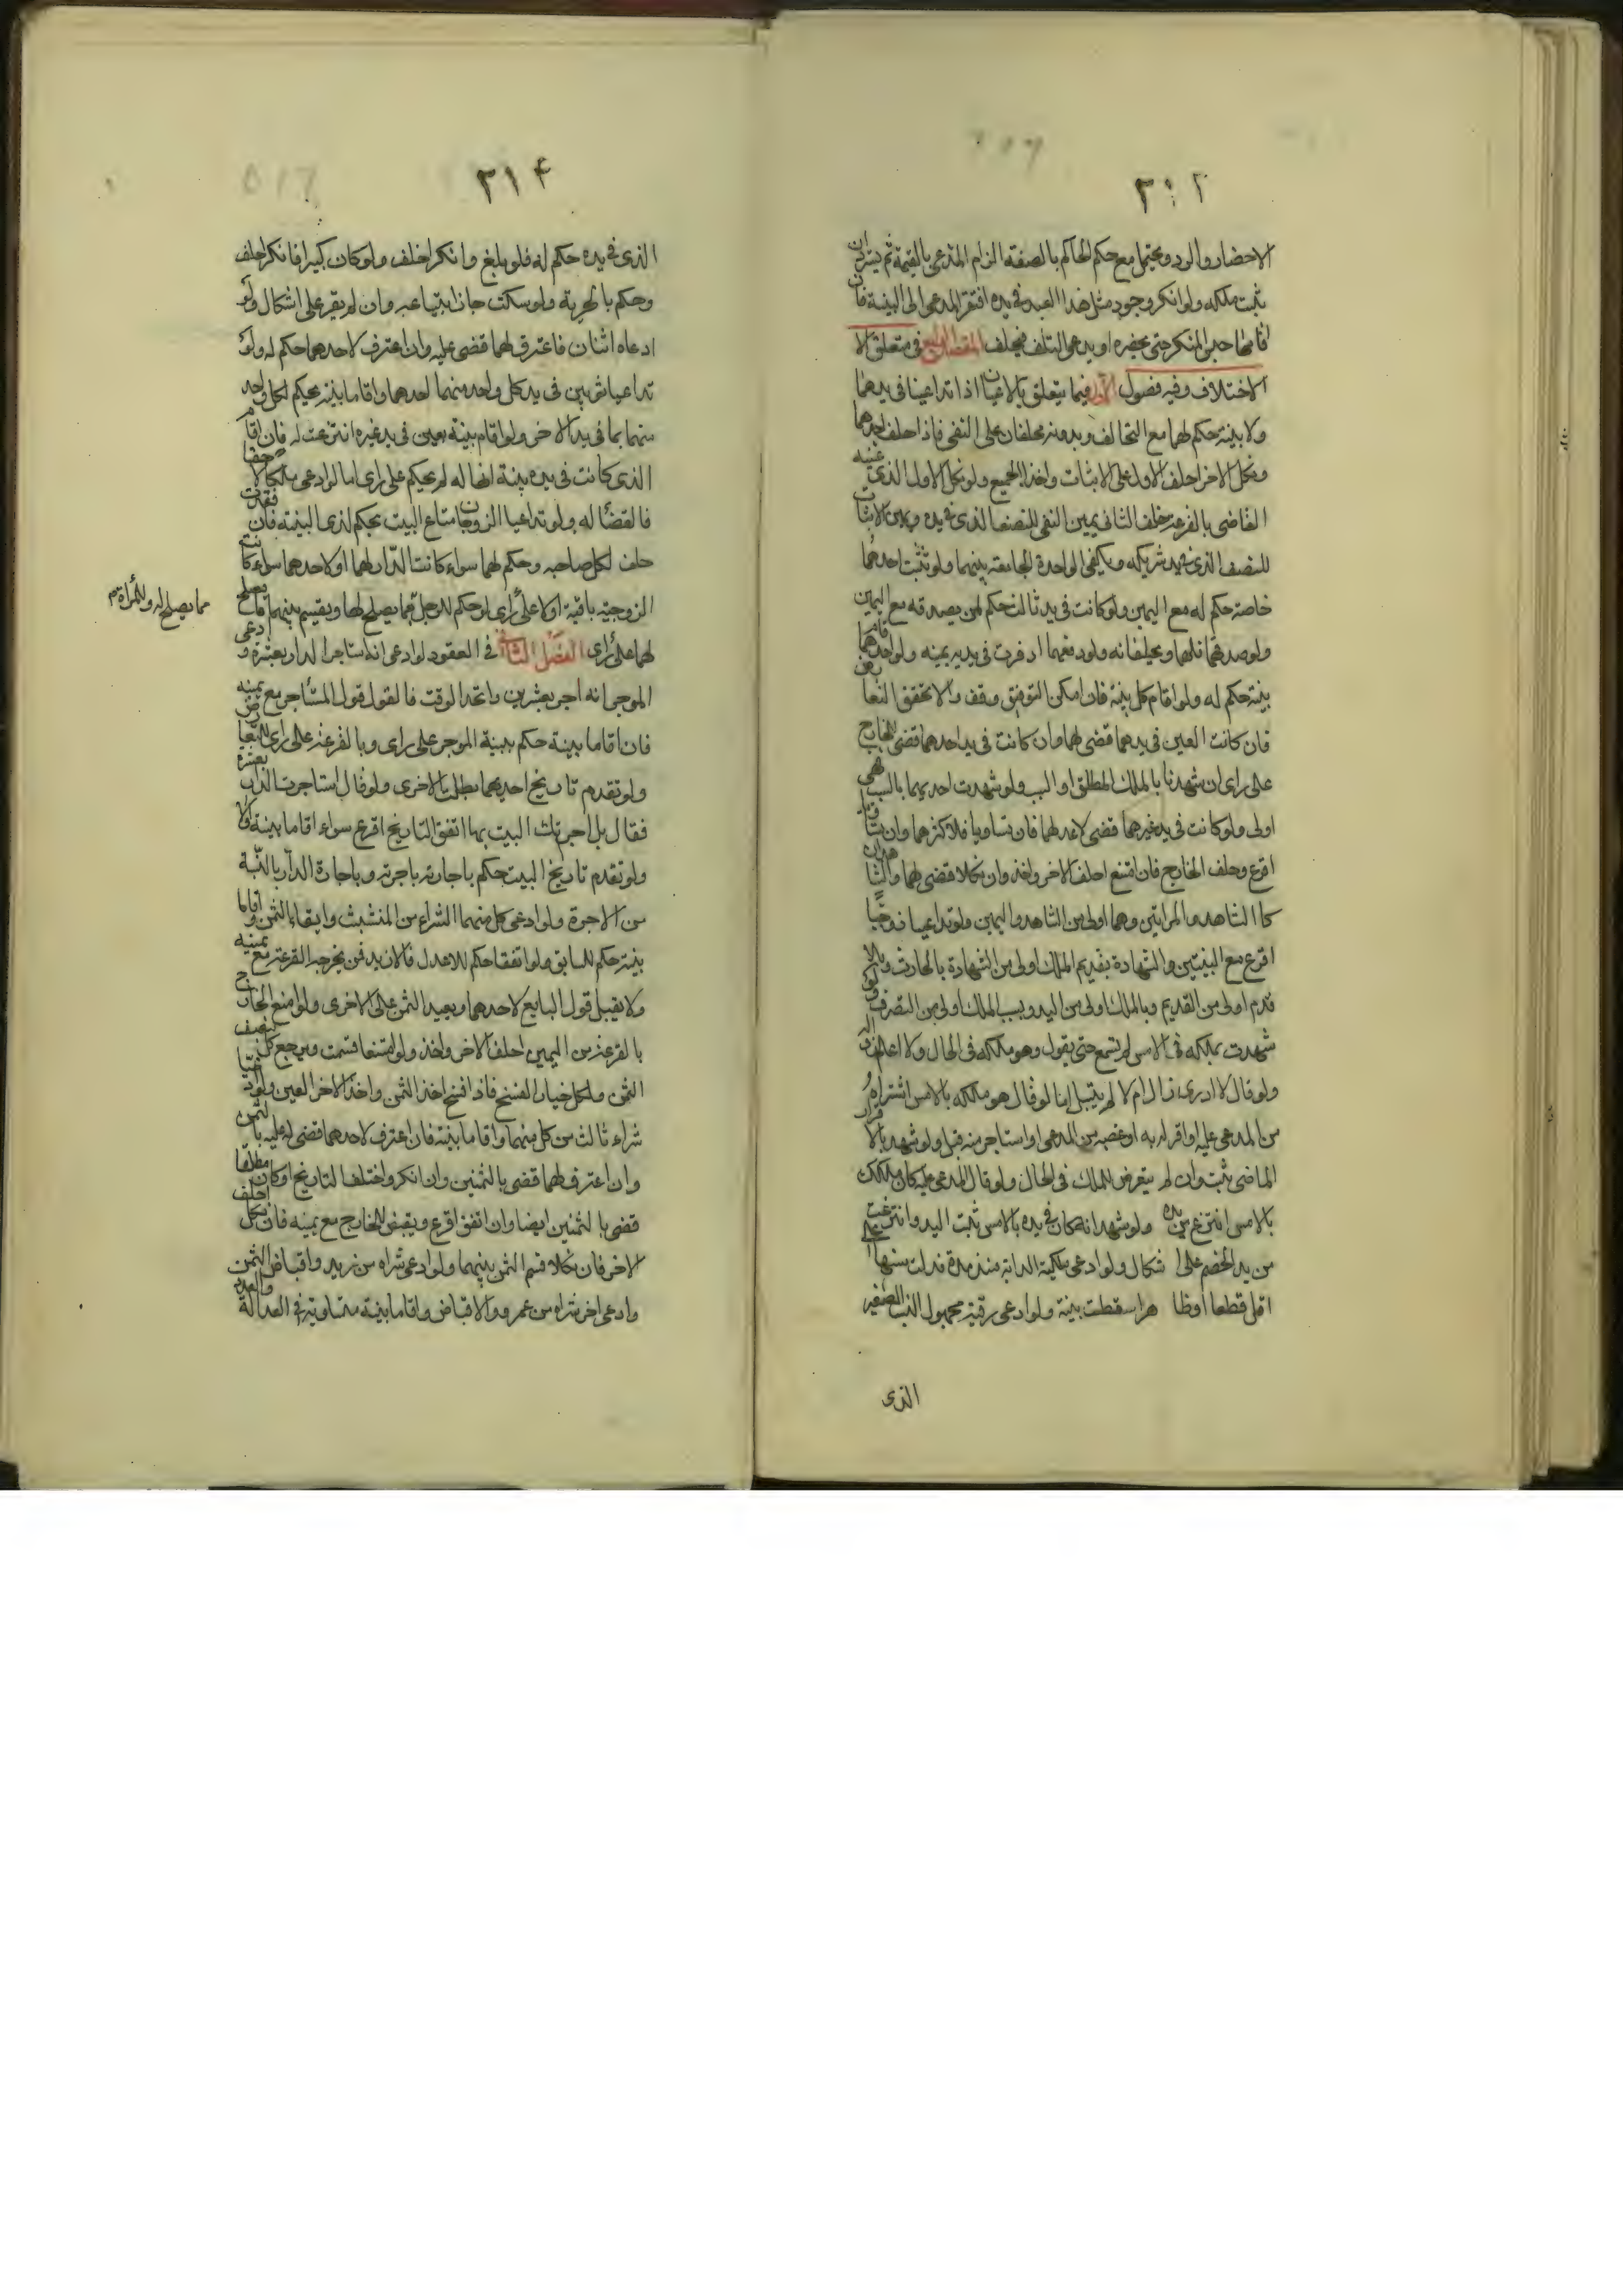 ٣١٢
الاحضار والرد ويحتمل مع حكم الحاكم بالصفة الزام المدعى بالقيمة ثم يسترد ان
ثبت ملكه ولو انكر وجود مثل هذا العبد فى يده افتقر المدعى الى البينة فان
اقامها حبس المنكر حتى يحضره او يدعى التلف فيحلف المقصد الرابع فى متعلق الا
الاختلاف وفيه فصول الاول فيما يتعلق بالاعيان اذا تداعينا فى يدهما
ولا بينة حكم لهما مع التحالف وبدونه يحلفان على النفى فاذا حلف احدهما
ونكل الاخر احلف الاول على الاثبات واخذ الجميع ولو نكل الاول الذى عينه
القاضى بالقرعة حلف الثانى يمين النفى للنصف الذى فى يده ويمين الاثبات
للنصف الذى فى يد شريكه ويكفى الواحدة الجامعة بينهما ولو تثبت احدهما
خاصة حكم له مع اليمين ولو كانت فى يد ثالث حكم لمن يصدقه مع اليمين
ولو صدقهما فلهما ويحلفانه ولو دفعهما اقرت فى يده بيمينه ولو اقام احدهما
بينة حكم له ولو اقام كل بينة فان امكن التوفيق وفق والا تحقق التعارض
فان كانت العين فى يدهما قضى لهما وان كانت فى يد احدهما قضى للخارج
على راى ان شهدتا بالملك المطلق او السبب ولو شهدت احديهما بالسبب فهى
اولى ولو كانت فى يد غيرهما قضى لاعدلهما فان تساويا فلاكثرهما وان تساويا
اقرع وحلف الخارج فان امتنع احلف الاخر واخذ وان نكلا قضى لهما والشاهدان
كالشاهد والمراتين وهما اولى من الشاهد واليمين ولو تداعيا زوجية
اقرع مع البينتين والشهادة بقديم الملك اولى من الشهادة بالحادث وبالا
قدم اولى من القديم وبالملك اولى من اليد وبسبب الملك اولى من التصرف ولو
شهدت بملكه فى الامس لم تسمع حتى يقول وهو ملكه فى الحال ولا اعلم زواله
ولو قال لا ادرى زال ام لا لم يقبل اما لو قال هو ملكه بالامس اشتراه
من المدعى عليه او اقر له به او غصبه من المدعى او استاجر منه قبل ولو شهد بالاقرار
الماضى ثبت وان لم يتعرض للملك فى الحال ولو قال المدعى عليه كان ملكك
بالامس انتزع من يده ولو شهد انه كان فى يده بالامس ثبت اليد وانتزعت
من يد الخصم على اشكال ولو ادعى ملكية الدابة منذ مدة فدلت سنها على
اقل قطعا او ظاهرا سقطت بينة ولو ادعى رقية مجهول النسب الصغير
الذى
٣١٤
الذى فى يده حكم له فلو بلغ وانكر احلف ولو كان كبيرا فانكر احلف
وحكم بالحرية ولو سكت جاز ابتياعه وان لم يقر على اشكال ولو
ادعاه اثنان فاعترف لهما قضى عليه وان اعترف لاحدهما حكم له ولو
تداعيا شيئين فى يد كل واحد منهما احدهما واقاما بينة يحكم لكل واحد
منهما بما فى يد الاخر ولو اقام بينة بعين فى يد غيره انتزعت له فان اقام
الذى كانت فى يده بينة انها له لم يحكم على راى اما لو ادعى ملكا لاحقا
فالقضا له ولو تداعيا الزوجان متاع البيت يحكم لذى البينة فان فقدت
حلف لكل صاحبه وحكم لهما سواء كانت الدار لهما او لاحدهما سواء كانت
الزوجية باقية او لا على راى او حكم للرجل بما يصلح لها ويقسم بينهما ما يصلح
مما يصلح له وللمرأة م
لهما على راى الفصل الثانى فى العقود لو ادعى انه استاجر الدار بعشرة وادعى
الموجر انه اجر بعشرين واتحد الوقت فالقول قول المستأجر مع يمينه
فان اقاما بينة حكم ببينة الموجر على راى وبالقرعة على راى للتعارض
ولو تقدم تاريخ احديهما بطلت الاخرى ولو قال استاجرت الدار بعشرة
فقال بل اجرتك البيت بها اتفق التاريخ اقرع سواء اقاما بينة او لا
ولو تقدم تاريخ البيت حكم باجارته باجرته وباجارة الدار بالنسبة
من الاجرة ولو ادعى كل منهما الشراء من المتشبث وايفاء الثمن واقاما
بينة حكم للسابق ولو اتفقا حكم للاعدل فالازيد فمن يخرجه القرعة مع يمينه
ولا يقبل قول البايع لاحدهما ويعيد الثمن على الاخرى ولو امتنع الخارج
بالقرعة من اليمين احلف الاخر واخذ ولو امتنعا قسمت ويرجع كل بنصف
الثمن ولكل خيار الفسخ فاذا فسخ اخذ الثمن واخذ الاخر العين ولو ادعيا
شراء ثالث من كل منهما واقاما بينة فان اعترف لاحدهما قضى له عليه بالثمن
وان اعترف لهما قضى بالثمنين وان انكر واختلف التاريخ او كان مطلقا
قضى بالثمنين ايضا وان اتفق اقرع ويقضى للخارج مع يمينه فان نكل احلف
الاخر فان نكلا قسم الثمن بينهما ولو ادعى شراه من زيد واقباض الثمن
وادعى اخر شراه من عمرو والاقباض واقاما بينة متساوية فى العدالة والعدد